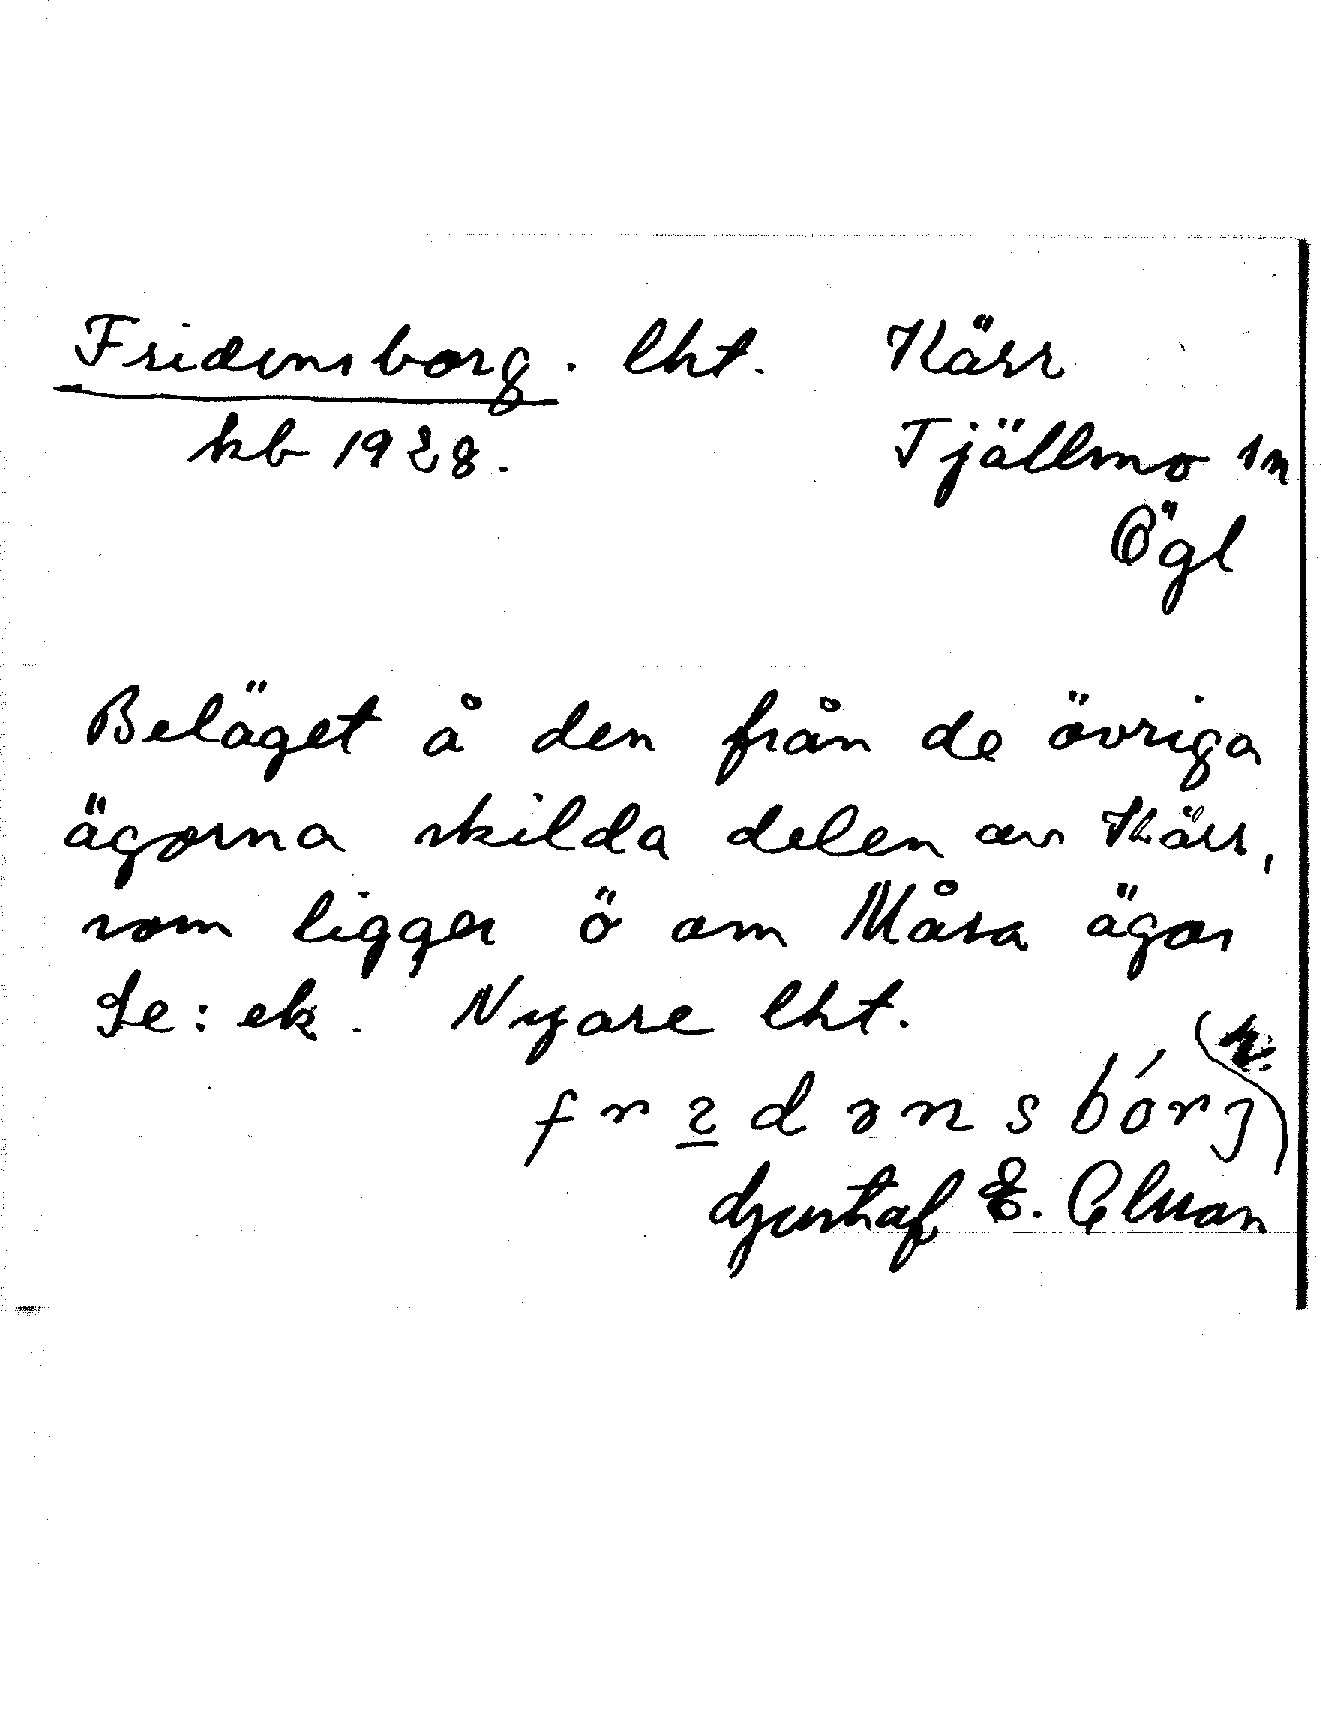 Fridensborg. lht. Kärr
kb 1928. Tjällmo sn
Ögl
Beläget å den från de övriga
ägorna skilda delen av Kärr,
som ligger ö om Måsa ägor
Se: ek. Nyare lht.
frıdənsbórj
Gustaf E.